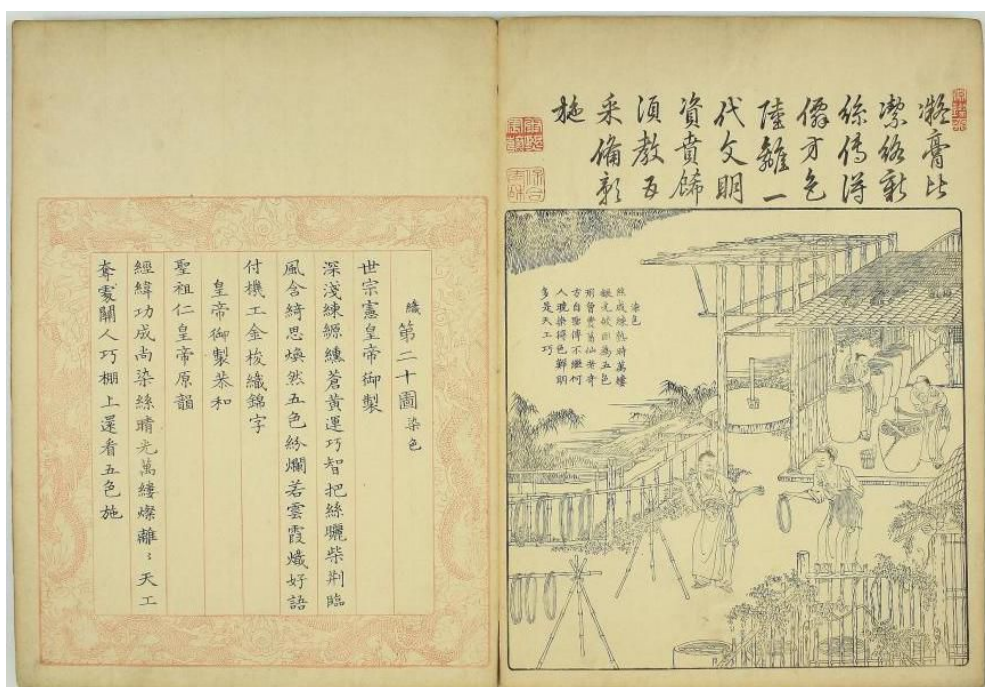 凝膏比
潔絡新
絲傳得
僊方色
陸離一
代文明
資賁餙
須教五
采備彰
施
染色
絲成練熟時萬縷
銀光皎因為五色
形曾費
人曬染得色鮮明
多是天工巧
織第二十圖染色
世宗憲皇帝御製
深淺練纁蒼黃運巧智把絲曬柴荆臨
風含綺思煥然五色紛爛若雲霞熾好語
付機工金梭織錦字
皇帝御製恭和
聖祖仁皇帝原韻
經緯功成尚染絲晴光萬縷燦離〻天工
奪處關人巧棚上還看五色施